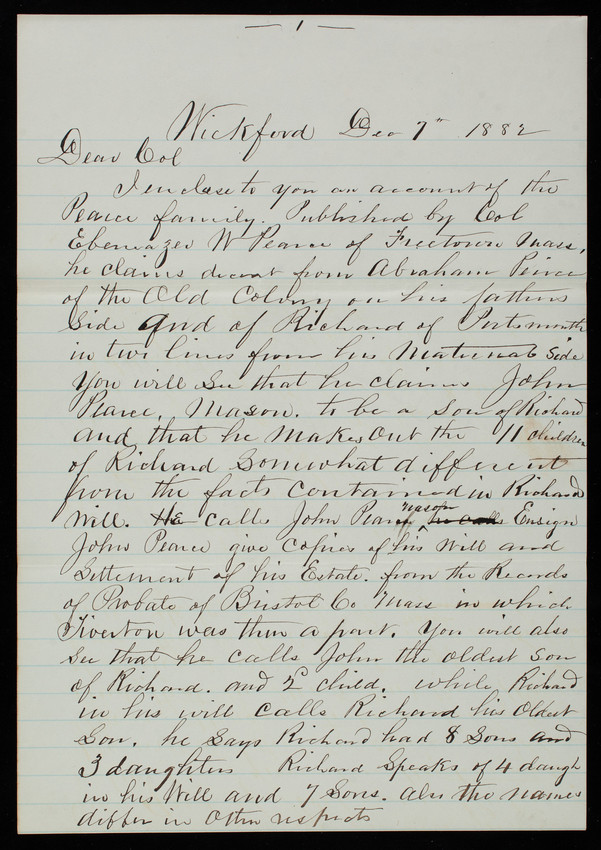 — 1 —
Wickford Dec 7th 1882
Dear Col
I enclose to you an account of the
Pearce family. Published by Col
Ebeneazer W Pearce of Freetown Mass,
he claims decent from Abraham Peirce
of the Old Colony on his fathers
Side And of Richard of Portsmouth
in two lines from his Maternal Side
You will See that he claims John
Pearce, Mason. to be a Son of Richard
and that he Makes out the 11 children
of Richard Somewhat different
from the facts contained in Richards
Will. He calls John Pearce mason he calls Ensign
John Pearce give Copies of his Will and
Settement of his Estate. from the Records
of Probate of Bristol Co Mass in which
Tiverton was then a part. You will also
See that he calls John the oldest Son
of Richard. and 2d child. while Richard
in his will calls Richard his Oldest
Son. he Says Richard had 8 Sons and
3 daughters Richard Speaks of 4 daugh
in his Will and 7 Sons. also the names
differ in Other respects